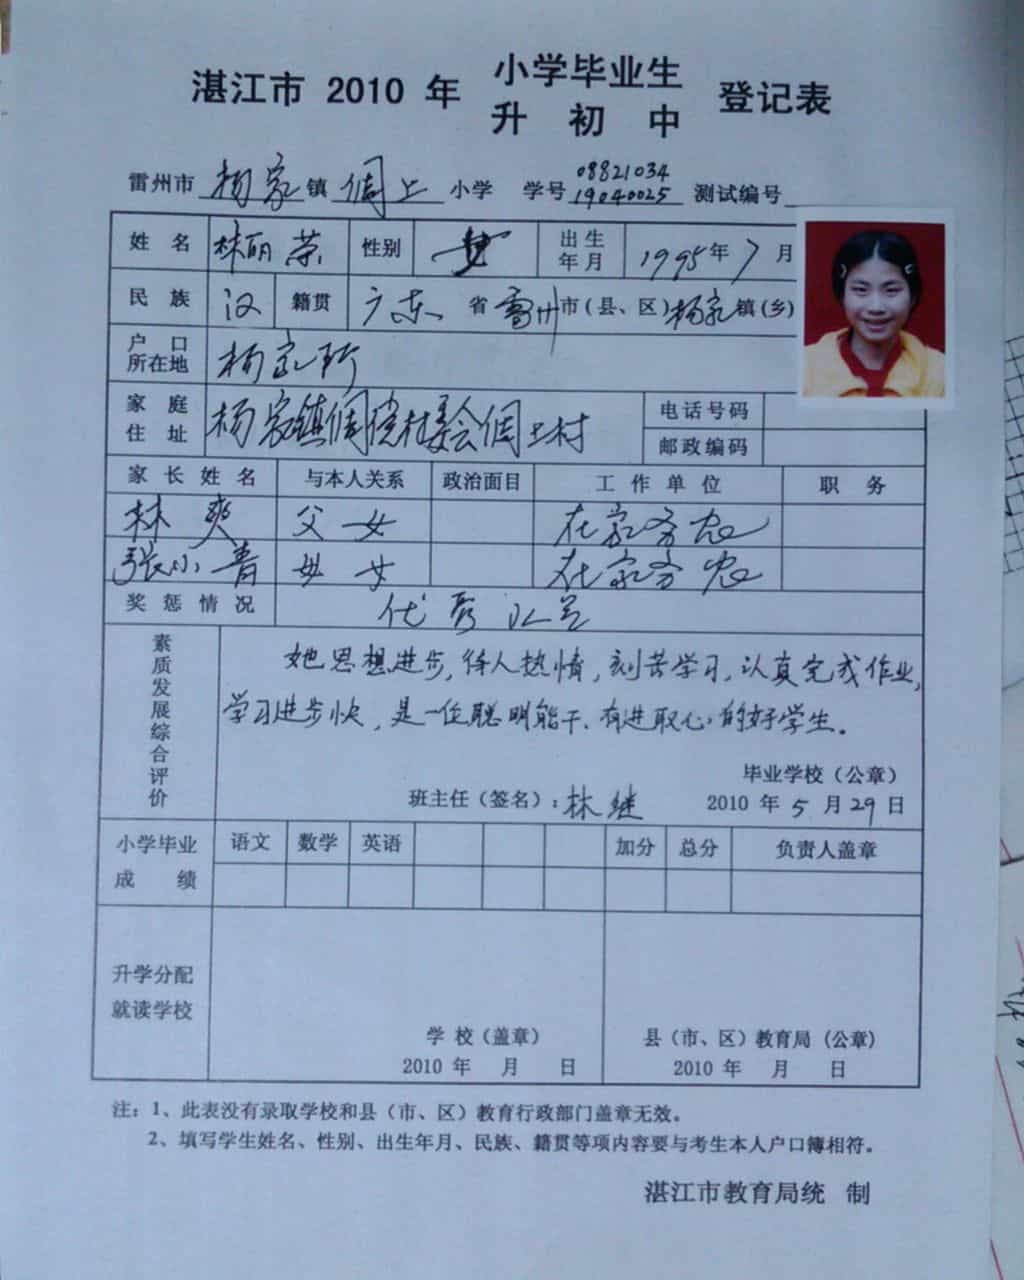 湛江市 2010 年 小学毕业生 登记表
升 初 中
雷州市 杨家 镇 倜上 小学 学号 08821034 测试编号
19040025
姓 名 林丽荣 性别 女 出生年月 1995年7月
民 族 汉 籍贯 广东 省 雷州 市(县、区) 杨家 镇(乡)
户口所在地 杨家所
家庭住址 杨家镇 村委会 上村 电话号码
邮政编码
家长姓名 与本人关系 政治面目 工作单位 职务
林爽 父女 在家务农
张小青 母女 在家务农
奖惩情况
素质发展综合评价
她思想进步,待人热情,刻苦学习,认真完成作业,
学习进步快,是一位聪明能干、有进取心的好学生。
毕业学校(公章)
班主任(签名):林继 2010 年 5 月 29 日
小学毕业成绩 语文 数学 英语 加分 总分 负责人盖章
升学分配
就读学校
学 校(盖章) 县(市、区)教育局(公章)
2010 年 月 日 2010 年 月 日
注:1、此表没有录取学校和县(市、区)教育行政部门盖章无效。
2、填写学生姓名、性别、出生年月、民族、籍贯等项内容要与考生本人户口簿相符。
湛江市教育局统 制